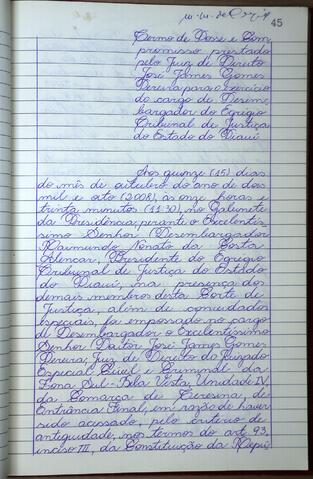 45
Termo de Posse e Com
promisso prestado
pelo Juiz de Direito
José James Gomes
Pereira para o exercício
do cargo de Desem
bargador do Egrégio
Tribunal de Justiça
do Estado do Piauí
Aos quinze (15) dias
do mês de outubro do ano de dois
mil e oito (2008), às onze horas e
trinta minutos (11:30), no Gabinete
da Presidência, perante o Excelentís
simo Senhor Desembargador
Raimundo Nonato da Costa
Alencar, Presidente do Egrégio
Tribunal de Justiça do Estado
do Piauí, na presença dos
demais membros desta Corte de
Justiça, além de convidados
especiais, foi empossado no cargo
de Desembargador o Excelentíssimo
Senhor Doutor José James Gomes
Pereira, Juiz de Direito do Juizado
Especial Cível e Criminal da
Zona Sul-Bela Vista, Unidade IV,
da Comarca de Teresina, de
Entrância Final, em razão de haver
sido acessado, pelo critério de
antiguidade, nos termos do art. 93,
inciso III, da Constituição da Repú